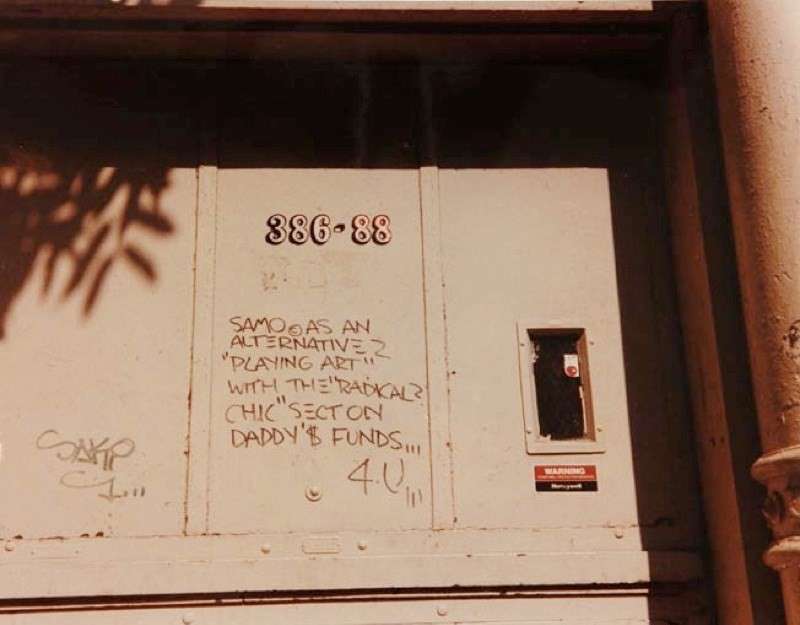 386-88
SAMO©AS AN
ALTERNATIVE 2
"PLAYING ART"
WITH THE "RADICAL?
CHIC" SECT ON
DADDY'$ FUNDS...
4.U...
WARNING
Honeywell